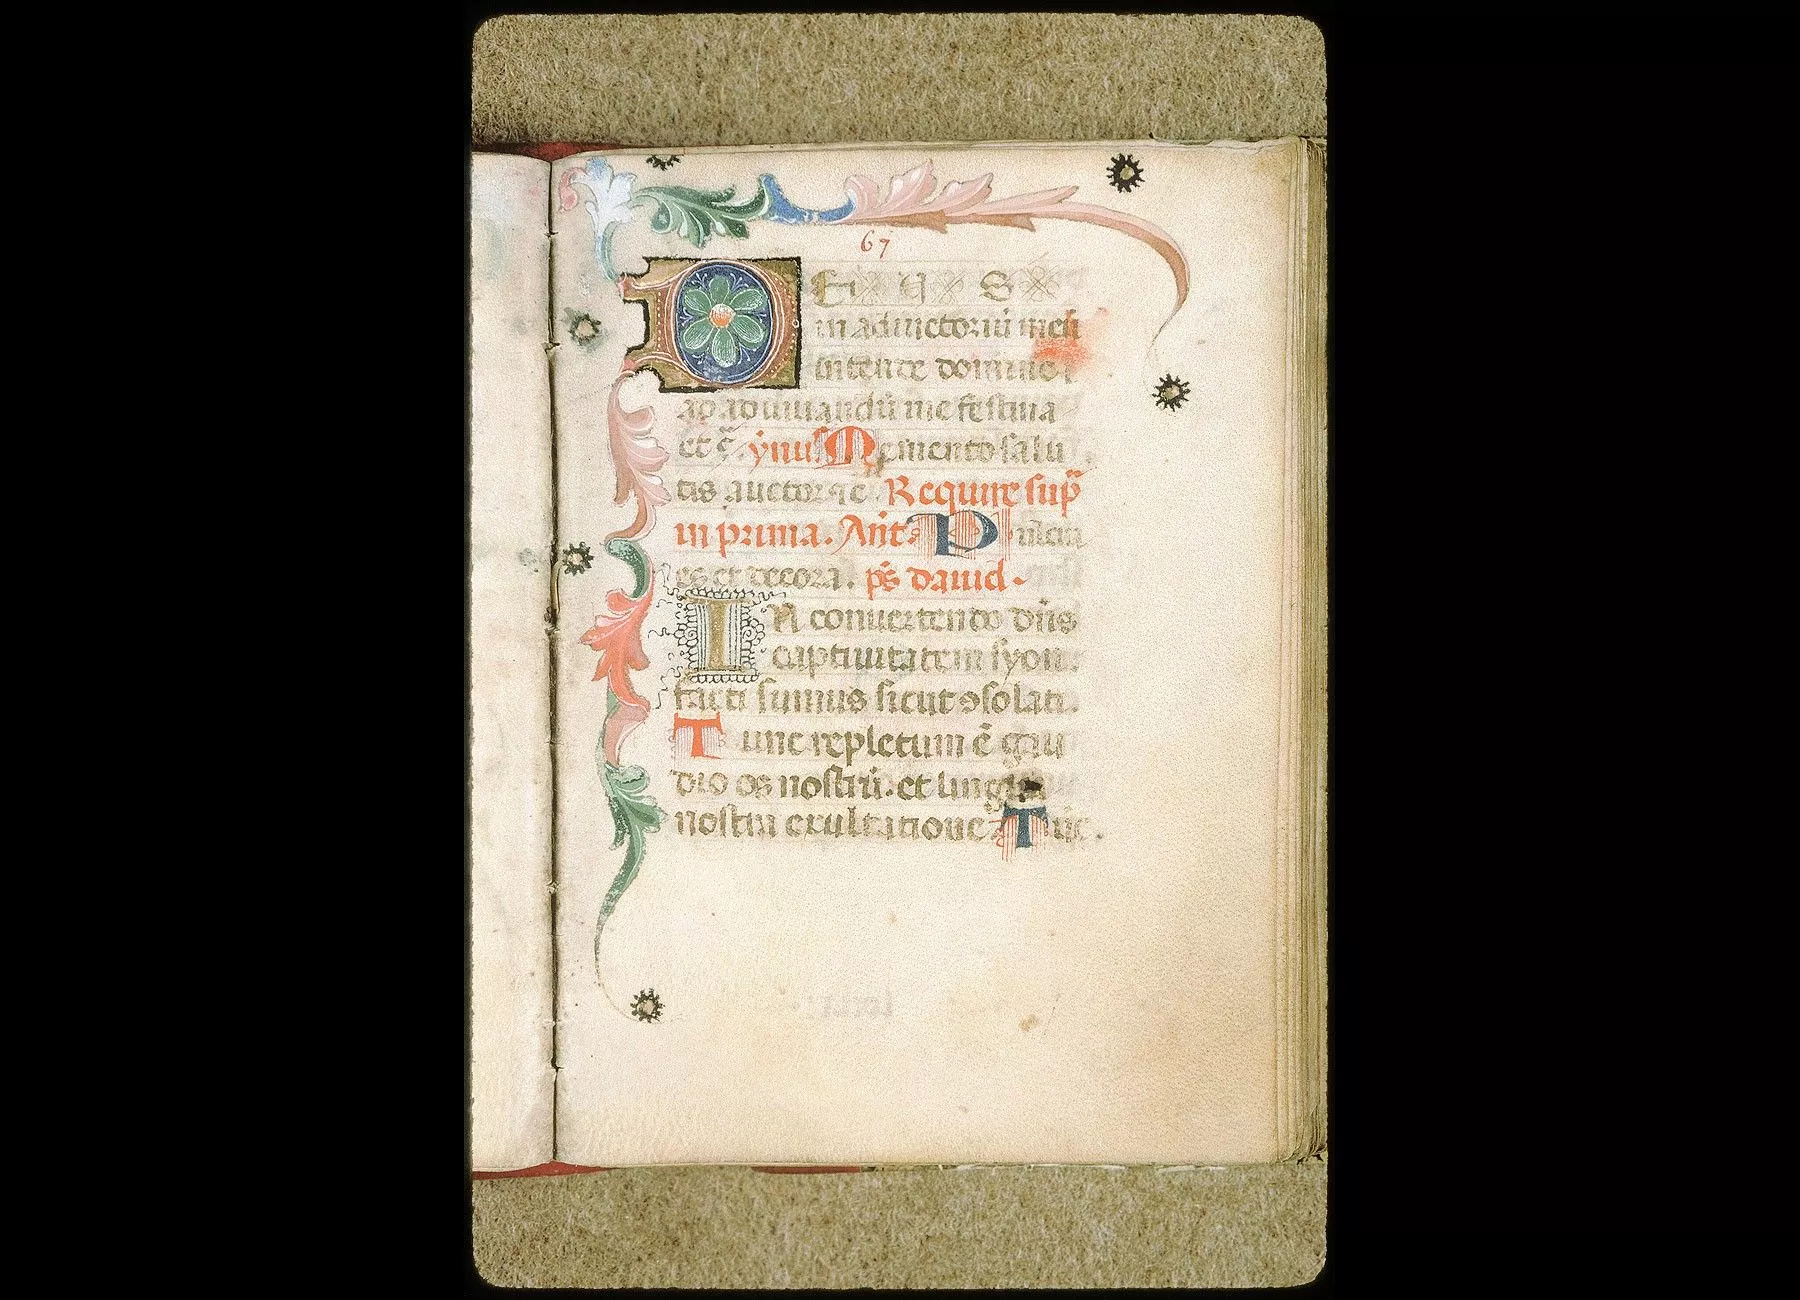 67
DEUS
in adiutoriū meū
intende domine
ad adiuuandū me festina
et c̄. ymus. Memento salu
tis auctor qd Require sup̄
in prima. Ant̄. Pulcra
es et decora. p̄s dauid.
IN conuertendo dn̄s
captiuitatem syon:
facti sumus sicut ꝯsolati.
Tunc repletum ē gau
dio os nostrū. et lingua
nostra exultatione Tūc.